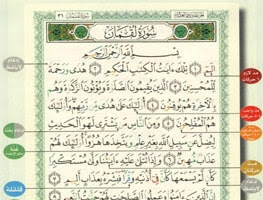 سُورَةُ لُقْمَانَ
بِسْمِ ٱللَّهِ ٱلرَّحْمَٰنِ ٱلرَّحِيمِ
الٓمٓ ١ تِلْكَ ءَايَٰتُ ٱلْكِتَٰبِ ٱلْحَكِيمِ ٢ هُدًى وَرَحْمَةً
لِّلْمُحْسِنِينَ ٣ ٱلَّذِينَ يُقِيمُونَ ٱلصَّلَوٰةَ وَيُؤْتُونَ ٱلزَّكَوٰةَ وَهُم
بِٱلْءَاخِرَةِ هُمْ يُوقِنُونَ ٤ أُو۟لَٰٓئِكَ عَلَىٰ هُدًى مِّن رَّبِّهِمْ وَأُو۟لَٰٓئِكَ
هُمُ ٱلْمُفْلِحُونَ ٥ وَمِنَ ٱلنَّاسِ مَن يَشْتَرِى لَهْوَ ٱلْحَدِيثِ
لِيُضِلَّ عَن سَبِيلِ ٱللَّهِ بِغَيْرِ عِلْمٍ وَيَتَّخِذَهَا هُزُوًا أُو۟لَٰٓئِكَ لَهُمْ
عَذَابٌ مُّهِينٌ ٦ وَإِذَا تُتْلَىٰ عَلَيْهِ ءَايَٰتُنَا وَلَّىٰ مُسْتَكْبِرًا
كَأَن لَّمْ يَسْمَعْهَا كَأَنَّ فِىٓ أُذُنَيْهِ وَقْرًا فَبَشِّرْهُ بِعَذَابٍ أَلِيمٍ ٧
إِنَّ ٱلَّذِينَ ءَامَنُوا۟ وَعَمِلُوا۟ ٱلصَّٰلِحَٰتِ لَهُمْ جَنَّٰتُ ٱلنَّعِيمِ ٨
قلقلة